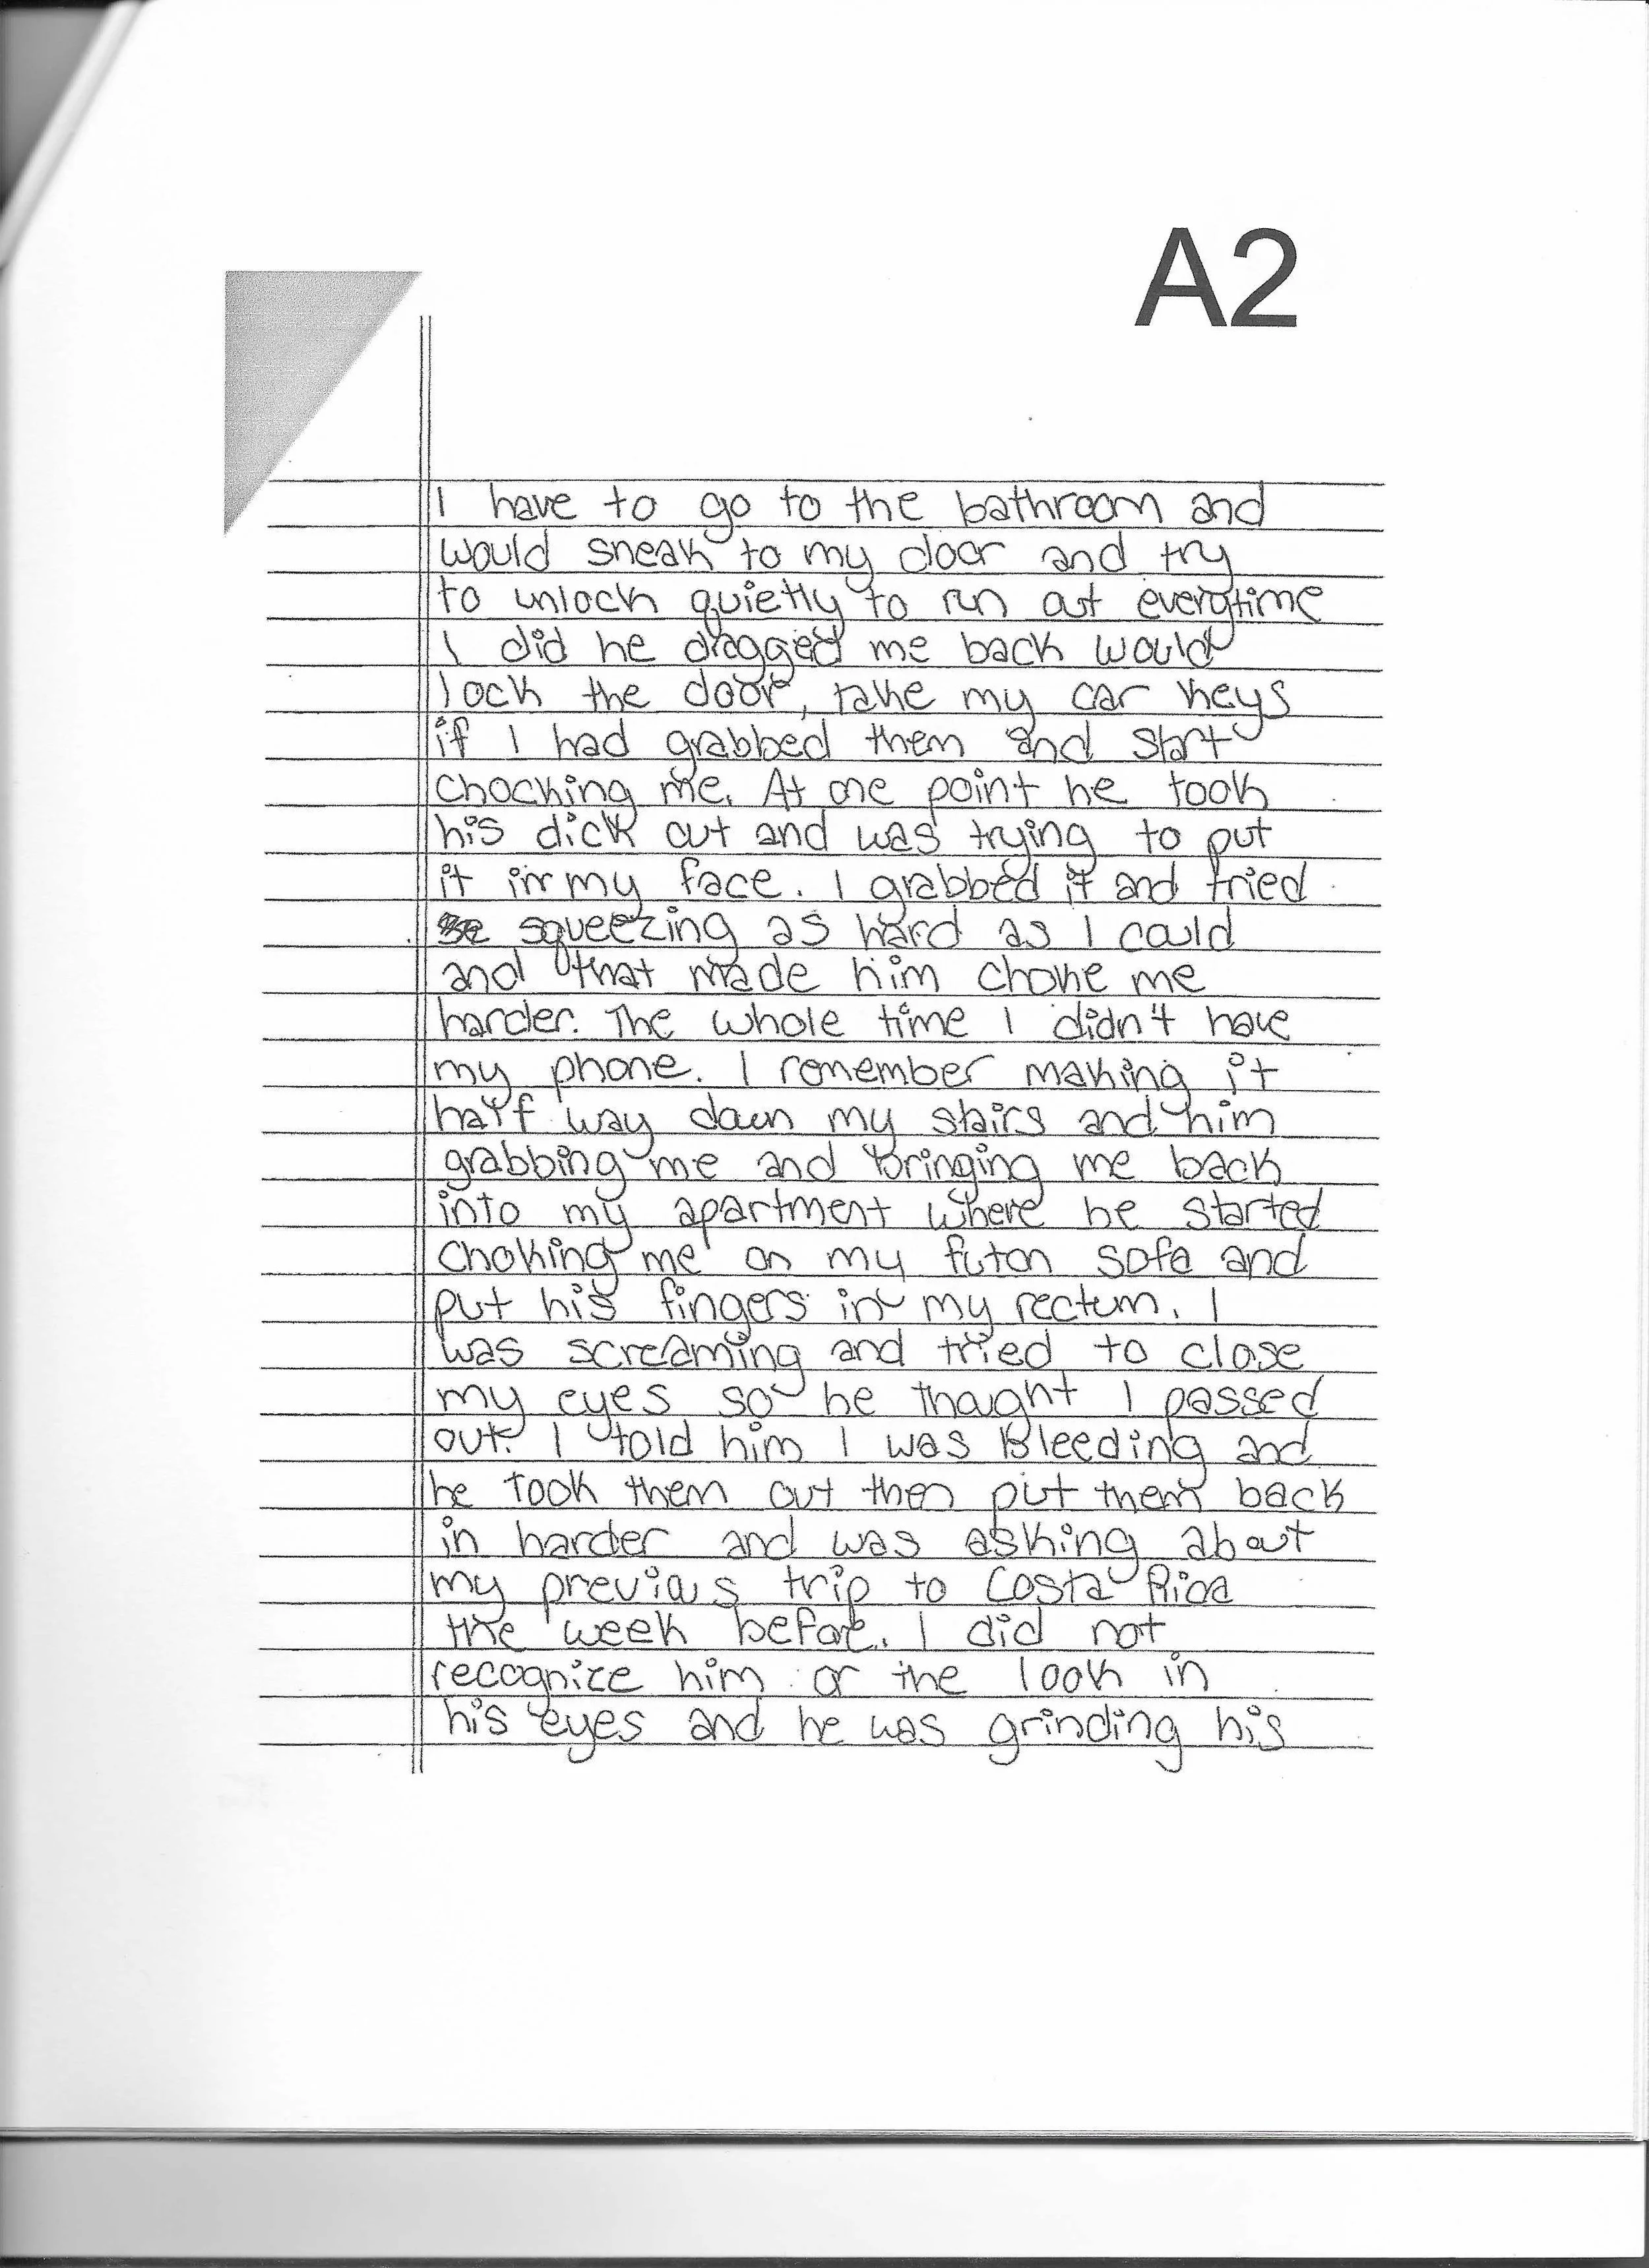 A2
I have to go to the bathroom and
would sneak to my door and try
to unlock quietly to run out everytime
I did he dragged me back would
lock the door, take my car keys
if I had grabbed them and start
chocking me. At one point he took
his dick out and was trying to put
it in my face. I grabbed it and tried
squeezing as hard as I could
and that made him choke me
harder. The whole time I didn't have
my phone. I remember making it
half way down my stairs and him
grabbing me and bringing me back
into my apartment where he started
choking me on my futon sofa and
put his fingers in my rectum. I
was screaming and tried to close
my eyes so he thaught I passed
out. I told him I was Bleeding and
he took them out then put them back
in harder and was asking about
my previous trip to Costa Rica
the week before. I did not
recognize him or the look in
his eyes and he was grinding his